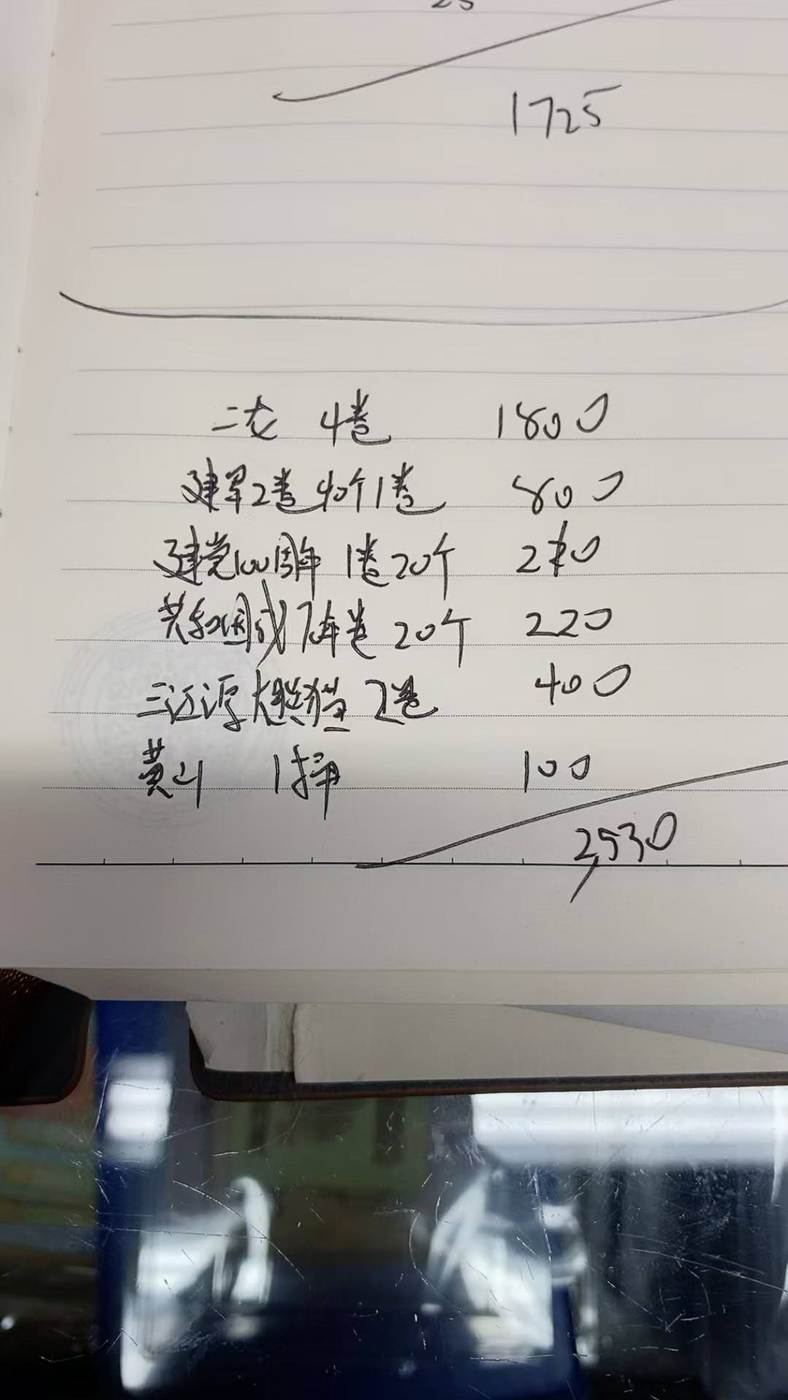 1725
二龙 4卷 1800
建军2卷 40个1卷 800
建党100周年 1卷20个 210
共和国成 卷 20个 220
三江源大熊猫 2卷 400
黄山 1 100
2530